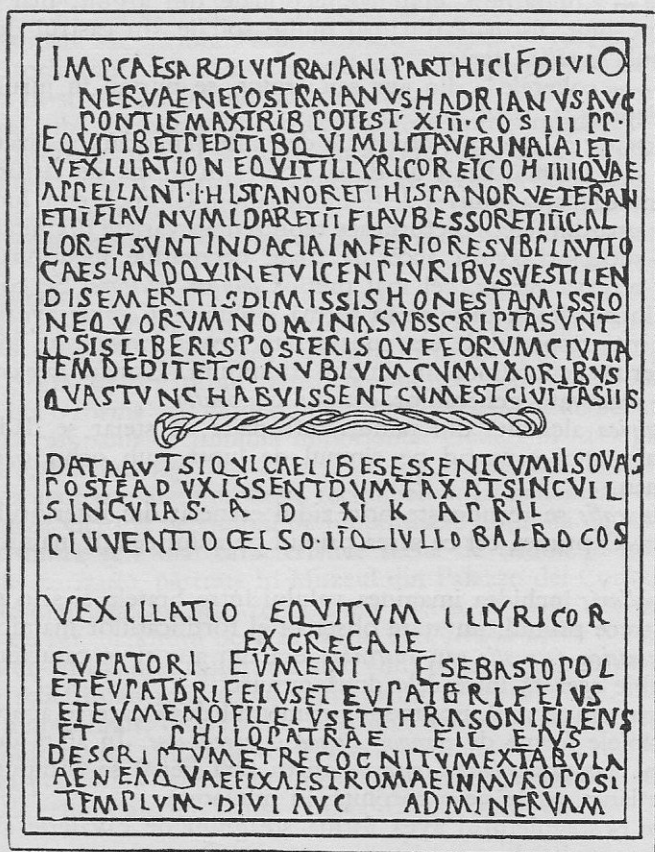 IMPCAESARDIVITRAIANIPARTHICIFDIVIO
NERVAENEPOSTRAIANVSHADRIANVSAVC
PONTIEMAXTRIBPOTEST·XIII·COSIIIPP·
EQVITIBETPEDITIBQVIMILITAVERINAIAIET
VEXILLATIONEQVITILLYRICORETCOHIIIIQVAE
APPELLANT·I·HISPANORETIHISPANORVETERAN
ETIIFLAVNVMIDARETIIFLAVBESSORETIIICAL
LORETSVNTINDACIAIMFERIORESVBPLAVTIO
CAESIANOQVINETVICENPLVRIBVSVESTIIEN
DISEMERITISDIMISSISHONESTAMISSIO
NEQVORVMNOMINASVBSCRIPTASVNT
IPSISLIBERISPOSTERISQVFEORVMCIVITA
TEMDEDITETCONVBIVMCVMVXORIBVS
QVASTVNCHABVISSENTCVMESTCIVITASIIS
DATAAVTSIQVICAELIBESESSENTCVMIISQVAS
POSTEADVXISSENTDVMTAXATSINCVIL
SINCVIAS· A D XI K APRIL
PIVVENTIOCELSO·IIQIVLIOBALBOCOS
VEXILLATIO EQVITVM LLYRICOR
EXCRECALE
EVPATORI EVMENI F SEBASTOPOL
ETEVPATORIFEIVSETEVPATORIFEIVS
ETEVMENOFILEIVSETTHRASONIFILEIVS
ET PHILOPATRAE FIL EIVS
DESCRIPTVMETRECOCNITVMEXTABVLA
AENEAQVAEFIXAESTROMAEINMVROPOSI
TEMPLVM·DIVIAVC ADMINERVAM